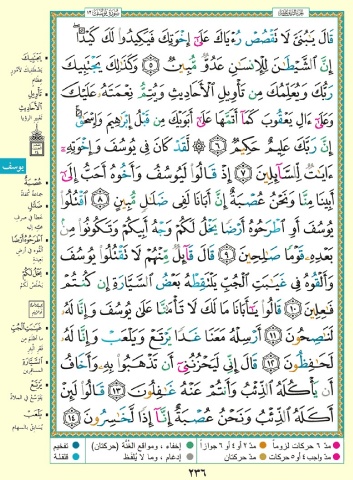 سُورَةُ يُوسُف ١٢
قَالَ يَٰبُنَىَّ لَا تَقْصُصْ رُءْيَاكَ عَلَىٰٓ إِخْوَتِكَ فَيَكِيدُوا۟ لَكَ كَيْدًا ۖ
إِنَّ ٱلشَّيْطَٰنَ لِلْإِنسَٰنِ عَدُوٌّ مُّبِينٌ ٥ وَكَذَٰلِكَ يَجْتَبِيكَ
رَبُّكَ وَيُعَلِّمُكَ مِن تَأْوِيلِ ٱلْأَحَادِيثِ وَيُتِمُّ نِعْمَتَهُۥ عَلَيْكَ
وَعَلَىٰٓ ءَالِ يَعْقُوبَ كَمَآ أَتَمَّهَا عَلَىٰٓ أَبَوَيْكَ مِن قَبْلُ إِبْرَٰهِيمَ وَإِسْحَٰقَ ۚ
إِنَّ رَبَّكَ عَلِيمٌ حَكِيمٌ ٦ لَّقَدْ كَانَ فِى يُوسُفَ وَإِخْوَتِهِۦٓ
ءَايَٰتٌ لِّلسَّآئِلِينَ ٧ إِذْ قَالُوا۟ لَيُوسُفُ وَأَخُوهُ أَحَبُّ إِلَىٰٓ
أَبِينَا مِنَّا وَنَحْنُ عُصْبَةٌ إِنَّ أَبَانَا لَفِى ضَلَٰلٍ مُّبِينٍ ٨ ٱقْتُلُوا۟
يُوسُفَ أَوِ ٱطْرَحُوهُ أَرْضًا يَخْلُ لَكُمْ وَجْهُ أَبِيكُمْ وَتَكُونُوا۟ مِنۢ
بَعْدِهِۦ قَوْمًا صَٰلِحِينَ ٩ قَالَ قَآئِلٌ مِّنْهُمْ لَا تَقْتُلُوا۟ يُوسُفَ
وَأَلْقُوهُ فِى غَيَٰبَتِ ٱلْجُبِّ يَلْتَقِطْهُ بَعْضُ ٱلسَّيَّارَةِ إِن كُنتُمْ
فَٰعِلِينَ ١٠ قَالُوا۟ يَٰٓأَبَانَا مَا لَكَ لَا تَأْمَ۫نَّا عَلَىٰ يُوسُفَ وَإِنَّا لَهُۥ
لَنَٰصِحُونَ ١١ أَرْسِلْهُ مَعَنَا غَدًا يَرْتَعْ وَيَلْعَبْ وَإِنَّا لَهُۥ
لَحَٰفِظُونَ ١٢ قَالَ إِنِّى لَيَحْزُنُنِىٓ أَن تَذْهَبُوا۟ بِهِۦ وَأَخَافُ
أَن يَأْكُلَهُ ٱلذِّئْبُ وَأَنتُمْ عَنْهُ غَٰفِلُونَ ١٣ قَالُوا۟ لَئِنْ
أَكَلَهُ ٱلذِّئْبُ وَنَحْنُ عُصْبَةٌ إِنَّآ إِذًا لَّخَٰسِرُونَ ١٤
يَجْتَبِيكَ
تَأْوِيلِ
الأَحَادِيثِ
تعبير الرؤيا
يوسف
عُصْبَةٌ
ضَلَالٍ
اطْرَحُوهُ أَرْضًا
يَخْلُ لَكُمْ
غَيَابَتِ الجُبِّ
السَّيَّارَةِ
المسافرين
يَرْتَعْ
يَلْعَبْ
مدّ ٦ حركات لزوماً
مدّ ٢ أو ٤ أو ٦ جوازاً
إخفاء، ومواقع الغُنَّة (حركتان)
تفخيم
مدّ واجب ٤ أو ٥ حركات
مدّ حركتان
إدغام، وما لا يُلفظ
قلقلة
٢٣٦